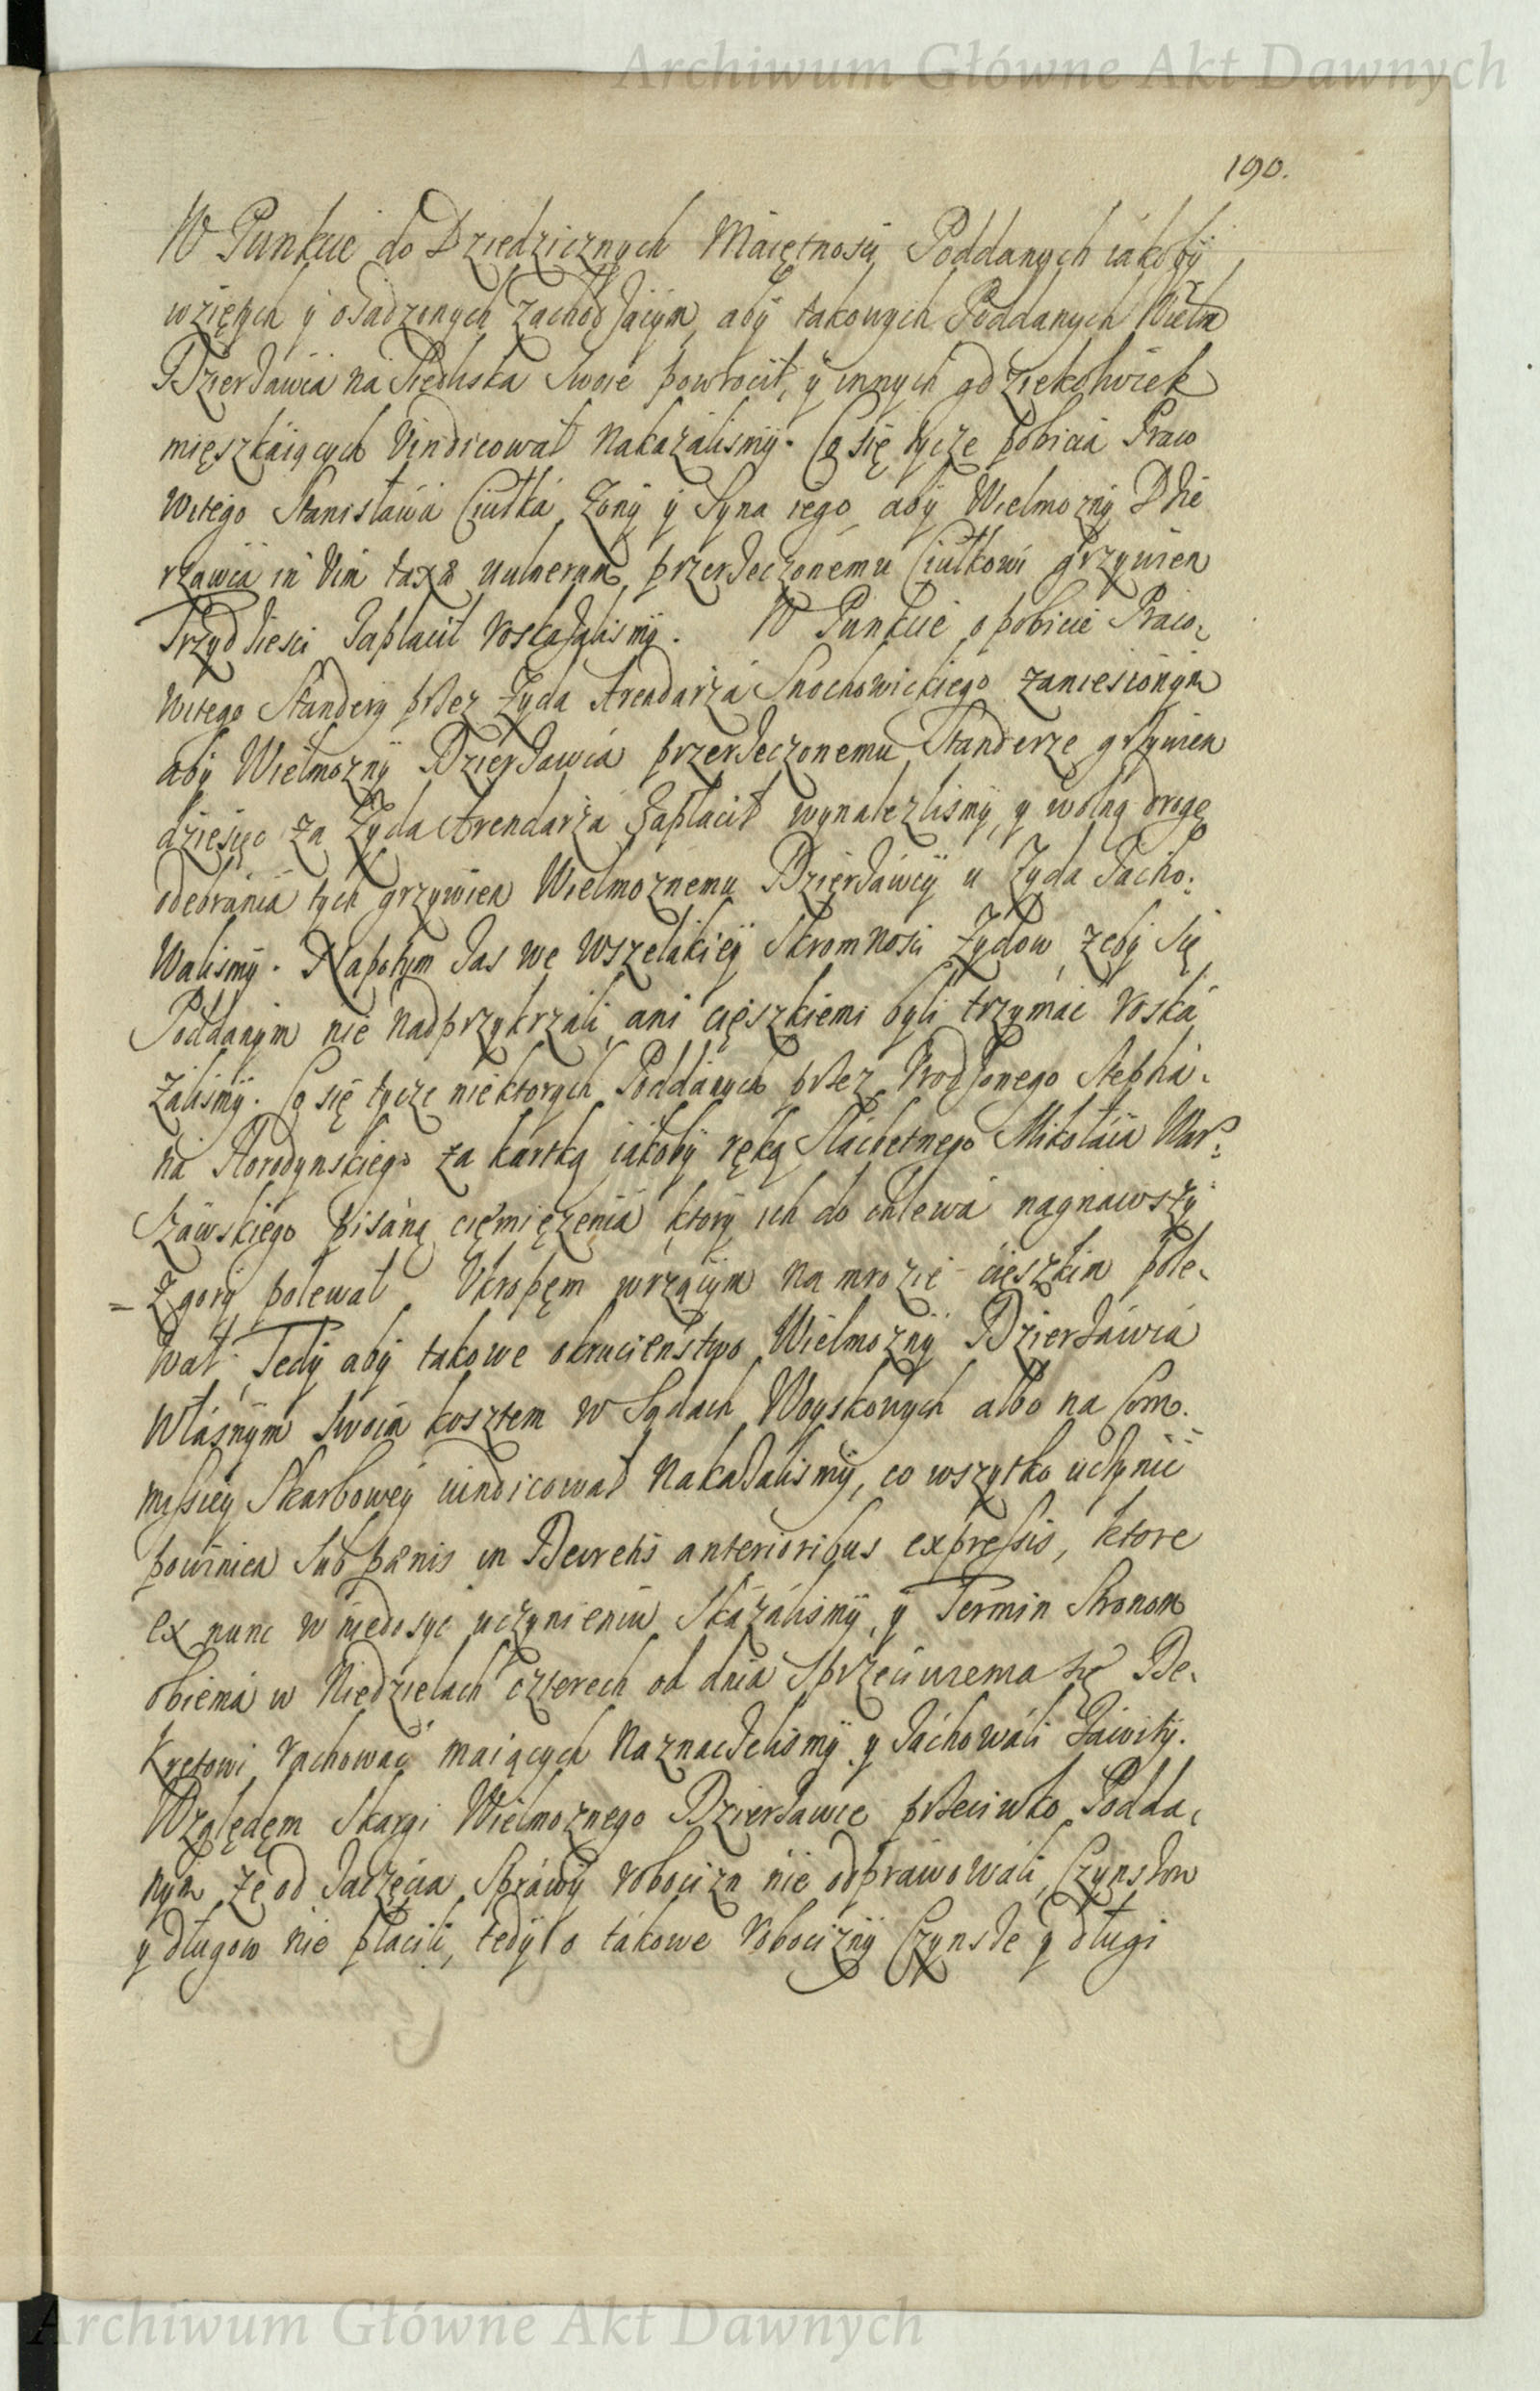 Archiwum Główne Akt Dawnych
190.
W Punkcie do Dziedzicznych Maiętnosci Poddanych iakoby
wziętych y osadzonych zachodzącym, aby takowych Poddanych Wielm
Dzierzawca na Siedliska Swoie powrocił, y innych gdziekolwiek
mięszkaiących Vindicował Nakazalismy. Co się tycze pobicia Praco
witego Stanisława Ciułka, Zony y Syna iego, aby Wielmozny Dzie
rzawca in Vim taxæ vulnerum, przerzeczonemu Ciułkowi grzywien
Trzydziesci Zapłacił roskazalismy. W Punkcie o pobicie Praco-
witego Standery przez Zyda Arendarza Snochowickiego zaniesionym
aby Wielmozny Dzierzawca przerzeczonemu Standerze grzywien
dziesięc za Zyda Arendarza Zapłacił wynalezlismy, y wolną drogę
odebrania tych grzywien Wielmoznemu Dzierzawcy u Zyda Zacho-
walismy. Napotym Zas we wszelakiey Skromnosci Zydow, zeby się
Poddanym nie nadprzykrzali, ani cięszkiemi byli trzymac roska
zalismy. Co się tycze niektorych Poddanych przez Urodzonego Stepha-
na Horodynskiego za kartką iakoby ręką Slachetnego Mikołaia War-
szawskiego pisaną ciemięzenia, ktory ich do chlewa nagnawszy
= z gory polewał Ukropem wrzącym na mrozie cięszkim pole-
wał. Tedy aby takowe okrucienstwo Wielmozny Dzierzawca
Własnym Swoim kosztem w Sądach Woyskowych albo na Com-
missiey Skarbowey vindicował Nakazalismy, co wszytko uczynic
powinien Sub pænis in Decretis anterioribus expressis, ktore
ex nunc w niedosyc uczynieniu Skazalismy, y Termin Stronom
obiema w Niedzielach czterech od dnia Sprzeciwienia się De-
kretowi rachowac maiących Naznaczelismy y Zachowali Zawity.
Względem Skargi Wielmoznego Dzierzawce przeciwko Podda-
nym, ze od Zaczęcia Sprawy robocizn nie odprawowali, Czynszow
y długow nie płacili, tedy o takowe robocizny Czynsze y długi
Archiwum Główne Akt Dawnych